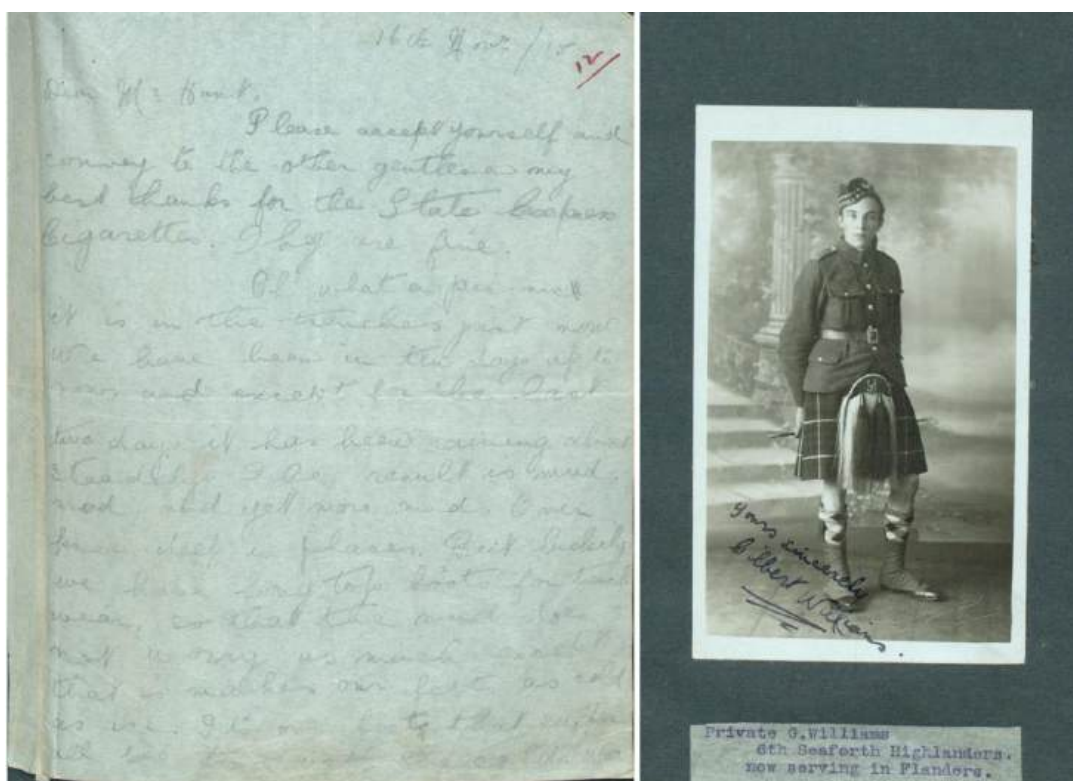 16th Novr/15
12
Dear Mr Hunt.
Please accept yourself and
convey to the other gentlemen my
best thanks for the State Express
Cigarettes. They are fine.
Oh what a
it is in the trenches just now
We have been in ten days up to
now and except for the last
two days it has been raining almost
steadily. The result is mud,
mud and yet more mud. Over
knee deep in places. But luckily
we have long top boots for trench
wear, so that the mud does
not worry us much except
that is makes our feet as cold
as ice. It's my feet that suffer
all the time
yours sincerely
Gilbert Williams.
Private G.Williams
6th Seaforth Highlanders.
now serving in Flanders.